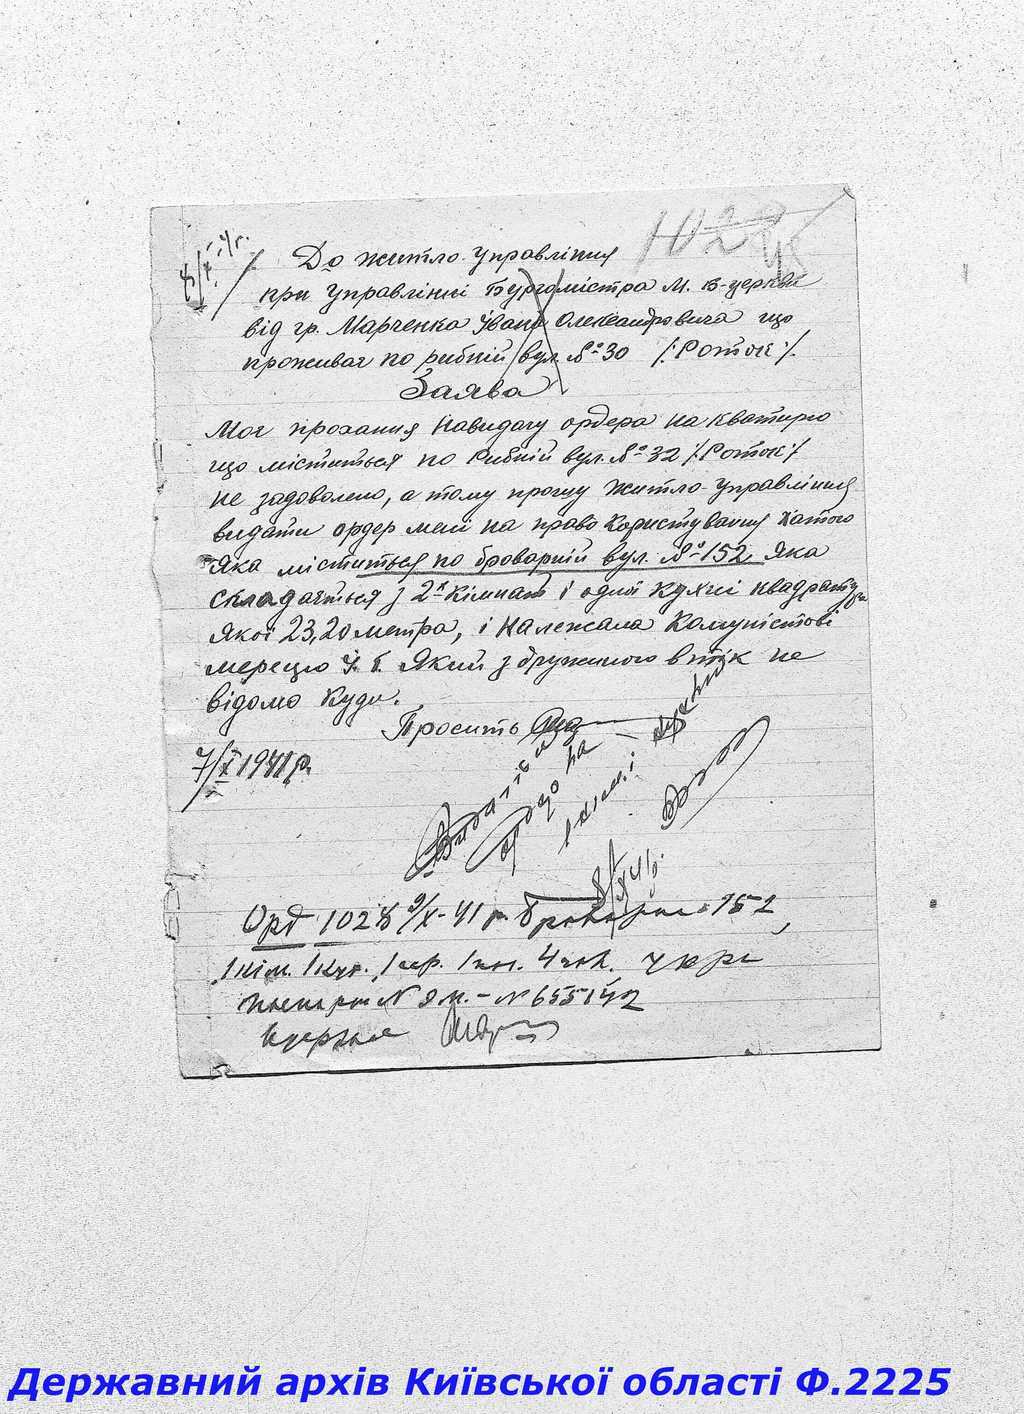 8/X-41г.
1028
До житло-управління
при управлінні Бургомістра м. Б-церкви
від гр. Марченка Івана Олександровича що
проживає по рибній вул. №30 /:Роток:/.
Заява
Моє прохання на видачу ордера на квартирю
що міститься по Рибній вул. №32 /:Роток:/
не задоволено, а тому прошу житло-управління
видати ордер мені на право користування хатою
яка міститься по броварній вул. №152 яка
складається з 2х кімнат і одної кухні квадратура
якої 23,20 метра, і належала комуністові
мерецю Ч. Б. який з дружиною втік не
відомо куди.
Просить
7/X 1941р.
Видати
ордер на
1 кімн. і
кухню
8/X 41р.
Орд 1028 9/X-41 р. Броварна 152,
1 кім. 1 кух., 4 чол. укр.
паспорт № 655142
Одержав
Державний архів Київської області Ф.2225